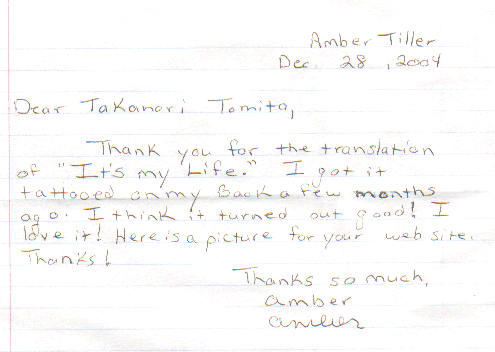 Amber Tiller
Dec. 28, 2004
Dear Takanori Tomita,
Thank you for the translation
of "It's my Life." I got it
tattooed on my Back a few months
ago. I think it turned out good! I
love it! Here is a picture for your web site.
Thanks!
Thanks so much,
amber
amber